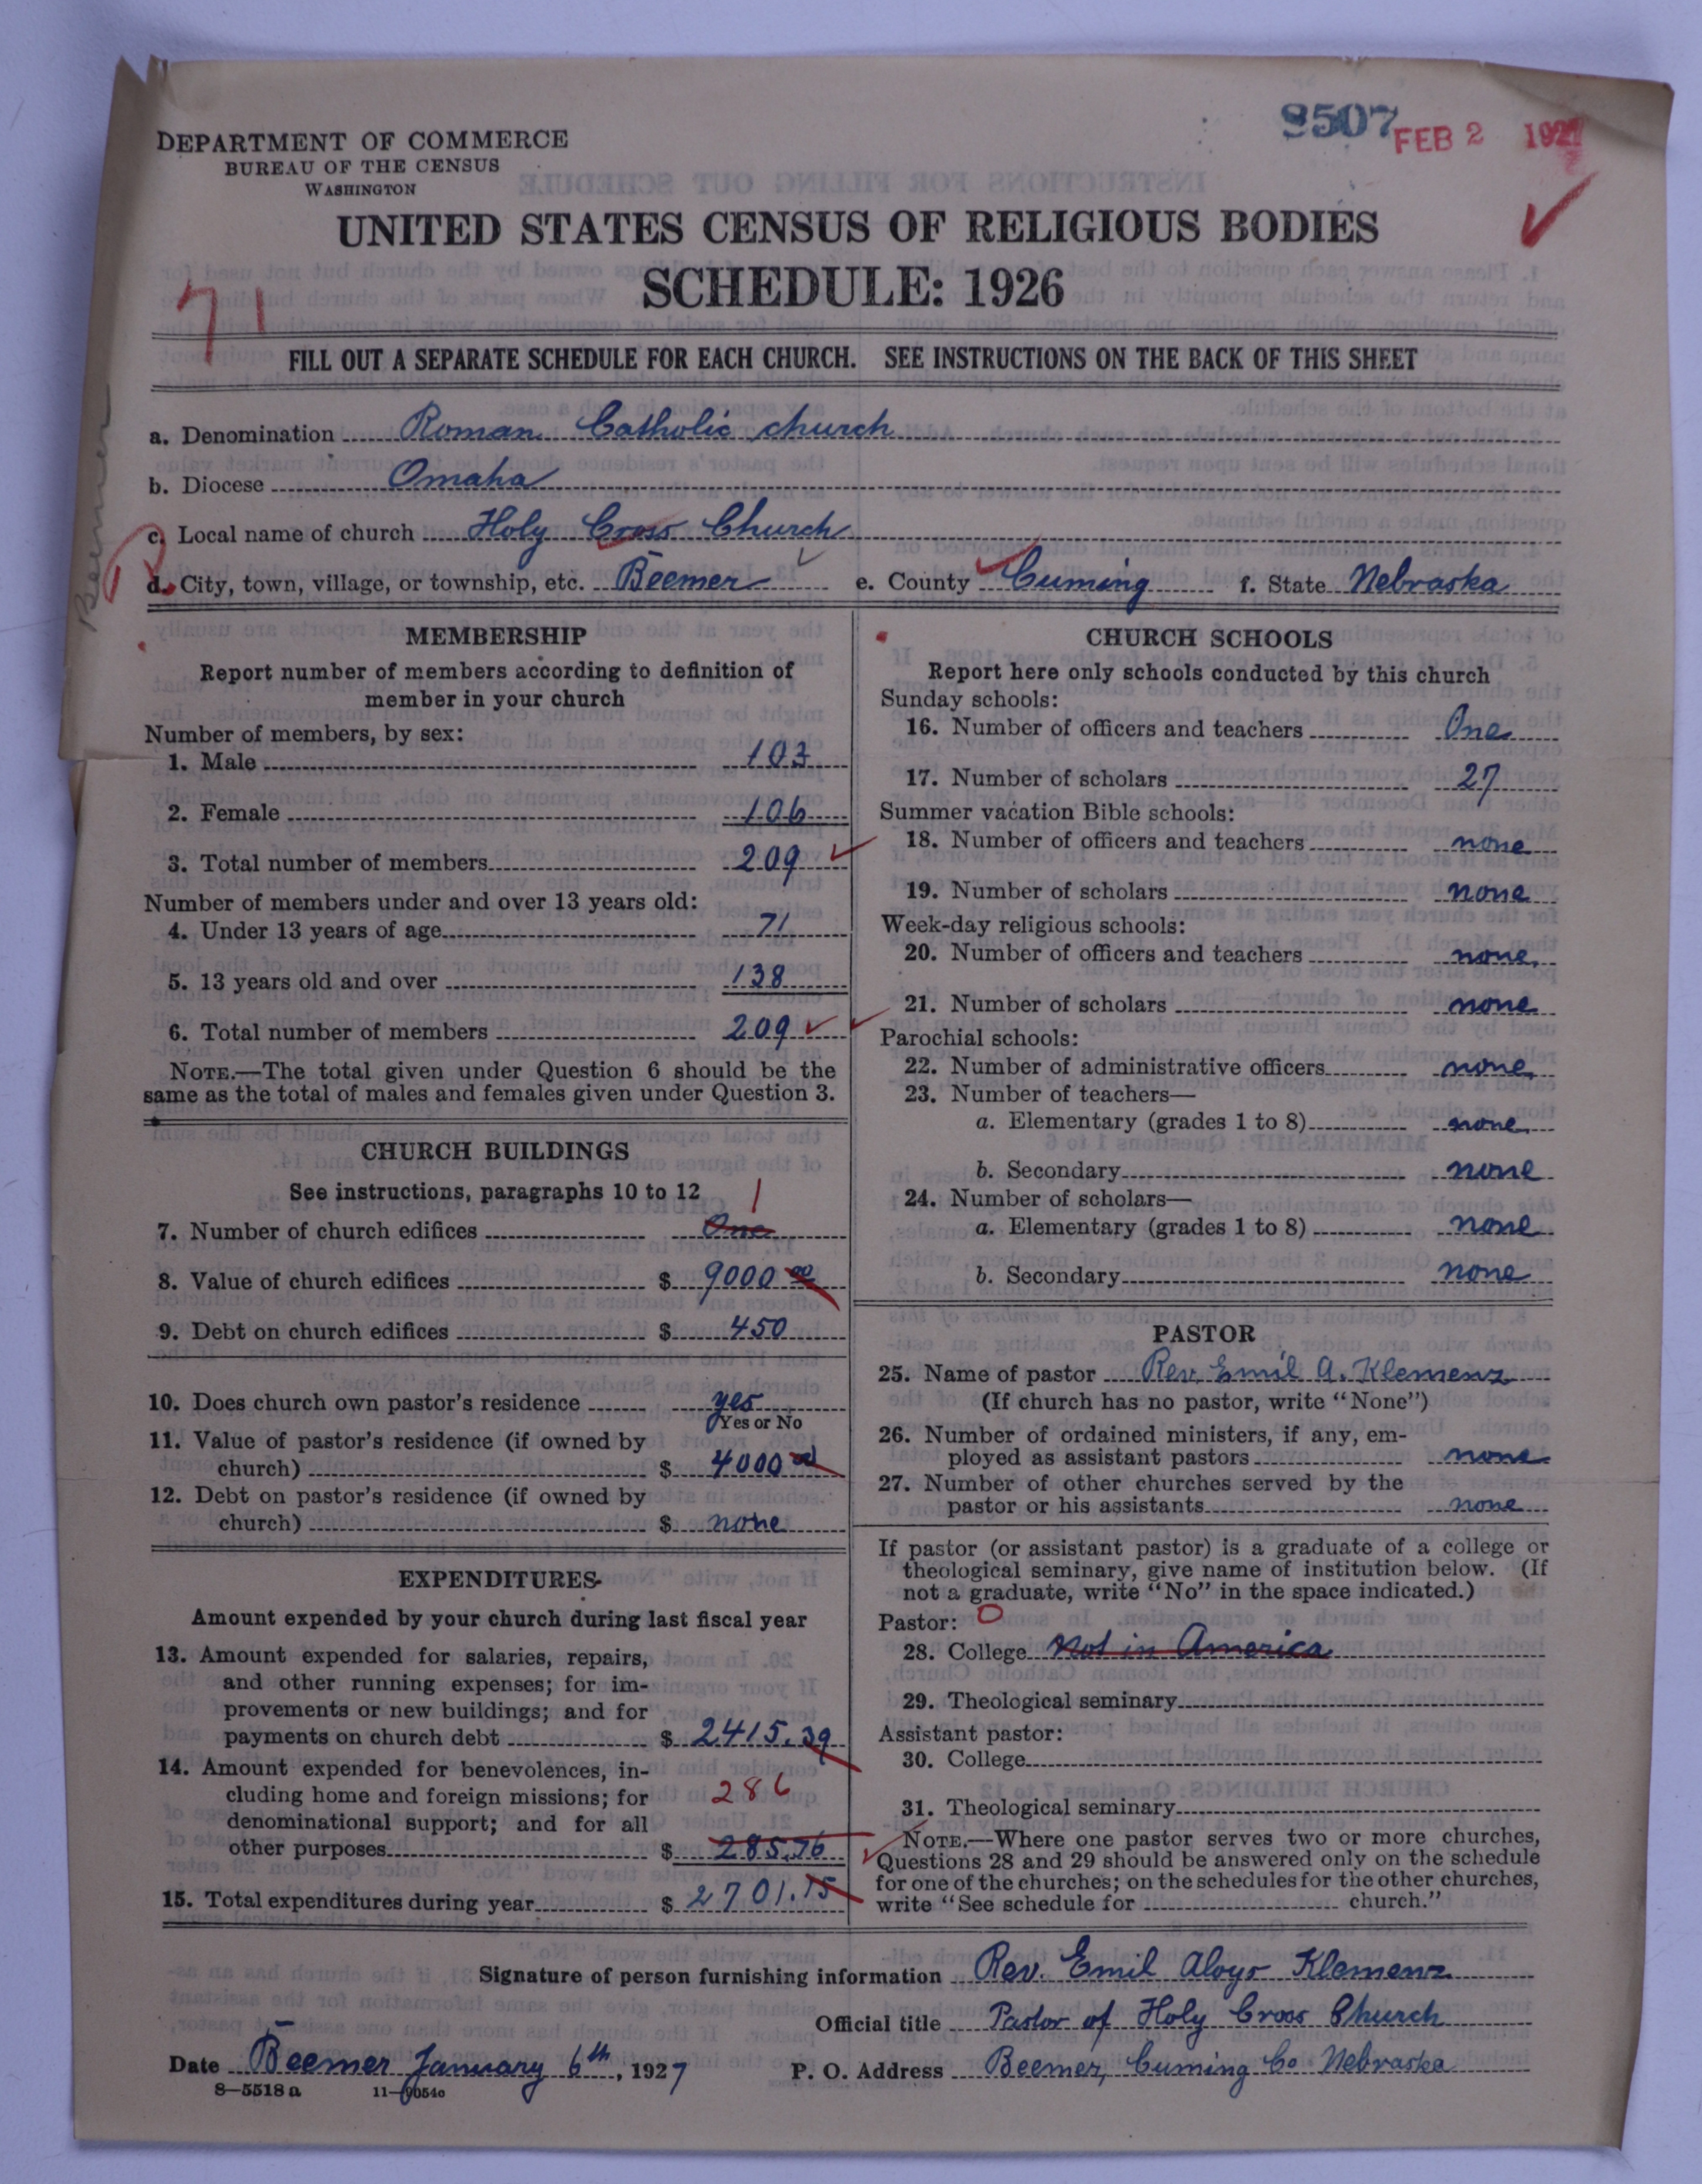 8507 FEB 2 1927
DEPARTMENT OF COMMERCE
BUREAU OF THE CENSUS
WASHINGTON
UNITED STATES CENSUS OF RELIGIOUS BODIES
SCHEDULE: 1926
71
FILL OUT A SEPARATE SCHEDULE FOR EACH CHURCH. SEE INSTRUCTIONS ON THE BACK OF THIS SHEET
Beemer
a. Denomination Roman Catholic church
b. Diocese Omaha
c. Local name of church Holy Cross Church
d. City, town, village, or township, etc. Beemer e. County Cuming f. State Nebraska
MEMBERSHIP
Report number of members according to definition of
member in your church
Number of members, by sex:
1. Male 103
2. Female 106
3. Total number of members 209
Number of members under and over 13 years old:
4. Under 13 years of age 71
5. 13 years old and over 138
6. Total number of members 209
NOTE.—The total given under Question 6 should be the
same as the total of males and females given under Question 3.
CHURCH BUILDINGS
See instructions, paragraphs 10 to 12
1
7. Number of church edifices One
8. Value of church edifices $ 9000 00
9. Debt on church edifices $ 450
10. Does church own pastor's residence yes
Yes or No
11. Value of pastor's residence (if owned by
church) $ 4000 00
12. Debt on pastor's residence (if owned by
church) $ none
EXPENDITURES
Amount expended by your church during last fiscal year
13. Amount expended for salaries, repairs,
and other running expenses; for im-
provements or new buildings; and for
payments on church debt $ 2415.39
14. Amount expended for benevolences, in-
cluding home and foreign missions; for 286
denominational support; and for all
other purposes $ 285.76
15. Total expenditures during year $ 2701.15
CHURCH SCHOOLS
Report here only schools conducted by this church
Sunday schools:
16. Number of officers and teachers One
17. Number of scholars 27
Summer vacation Bible schools:
18. Number of officers and teachers none
19. Number of scholars none
Week-day religious schools:
20. Number of officers and teachers none
21. Number of scholars none
Parochial schools:
22. Number of administrative officers none
23. Number of teachers—
a. Elementary (grades 1 to 8) none
b. Secondary none
24. Number of scholars—
a. Elementary (grades 1 to 8) none
b. Secondary none
PASTOR
25. Name of pastor Rev. Emil A. Klemenz
(If church has no pastor, write "None")
26. Number of ordained ministers, if any, em-
ployed as assistant pastors none
27. Number of other churches served by the
pastor or his assistants none
If pastor (or assistant pastor) is a graduate of a college or
theological seminary, give name of institution below. (If
not a graduate, write "No" in the space indicated.)
Pastor: 0
28. College Not in America
29. Theological seminary
Assistant pastor:
30. College
31. Theological seminary
NOTE.—Where one pastor serves two or more churches,
Questions 28 and 29 should be answered only on the schedule
for one of the churches; on the schedules for the other churches,
write "See schedule for church."
Signature of person furnishing information Rev. Emil Aloys Klemenz
Official title Pastor of Holy Cross Church
Date Beemer January 6th, 1927 P. O. Address Beemer, Cuming Co Nebraska
8—5518 a